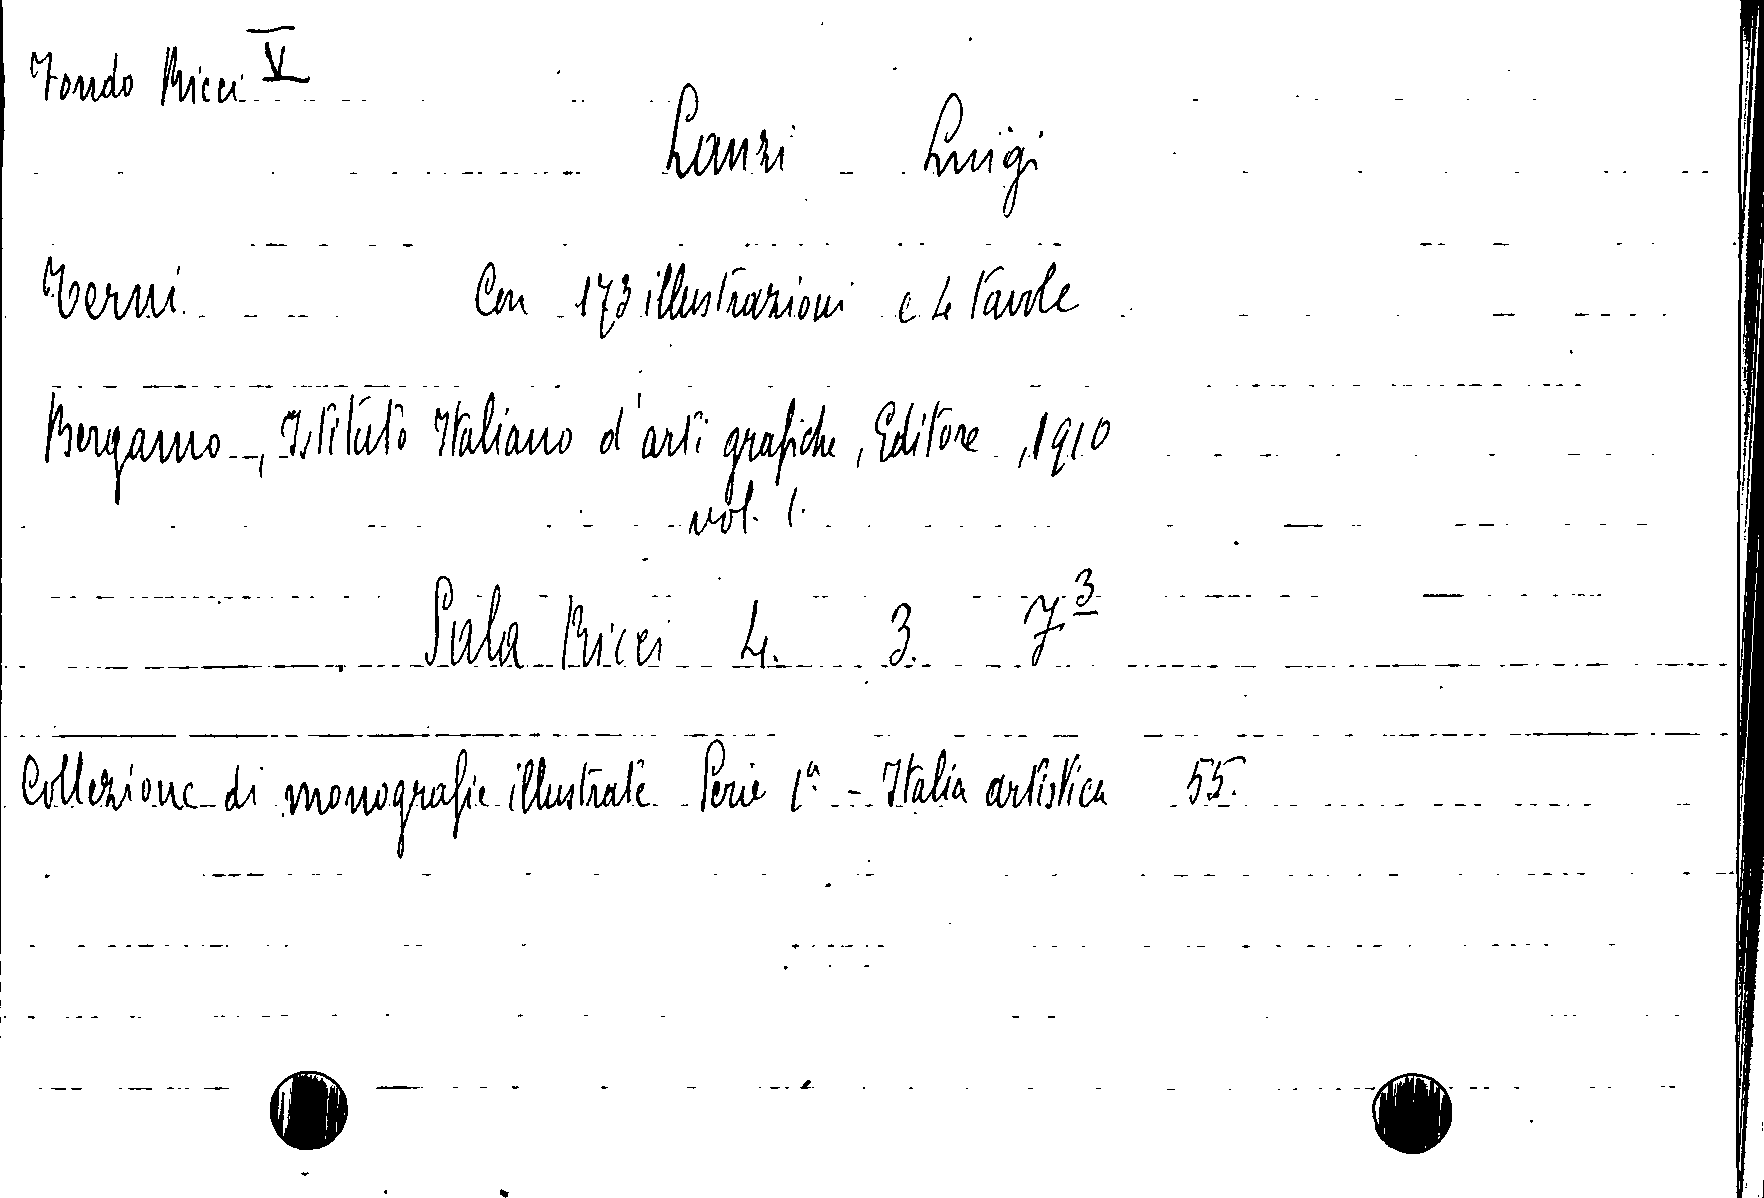 Fondo Ricci V
Lanzi Luigi
Terni Con 173 illustrazioni e 4 tavole
Bergamo, Istituto Italiano d'arti grafiche, Editore, 1910
vol. 1.
Sala Ricci 4. 3. 7³
Collezione di monografie illustrate Serie 1ª - Italia artistica 55.